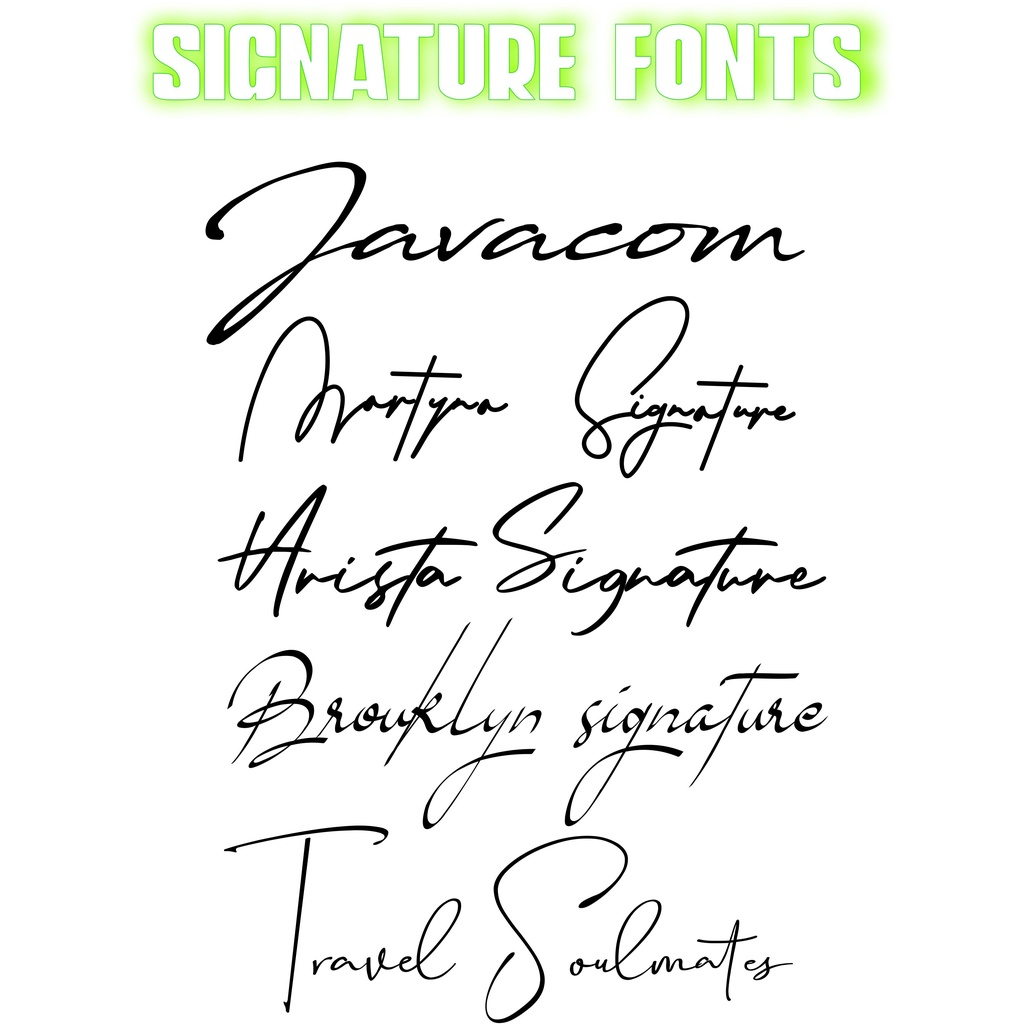 SIGNATURE FONTS
Javacom
Martyna Signature
Arista Signature
Brouklyn signature
Travel Soulmates